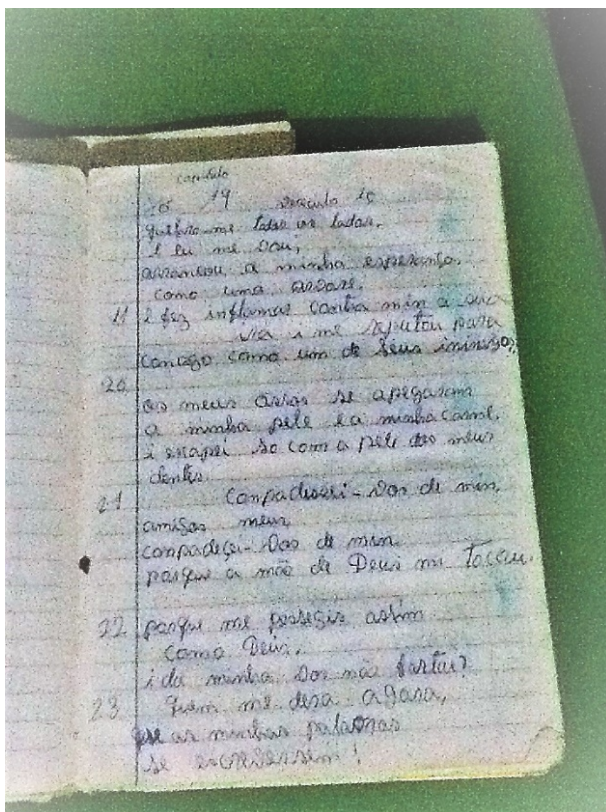 capitulo
10 19 versiculo 10
quebro-me todos os lados,
i eu me vou,
arrancou, a minha esperança,
como uma arvore.
11 i fez inflamar contra min a sua
ira i me reputou para
consigo como um de seus inimigos,
20
os meus ossos se apegaram
a minha pele i a minha carne,
i escapei so com a pele dos meus
dentes
21 Conpadecei-vos de min,
amigos meus
conpadeçei-vos de min
porque a mão de Deus mi tocou.
22 porque me persegis assim
como Deus,
i da minha vos não fartais?
23 quem me dera agora,
que as minhas palavras
se escrevessem!